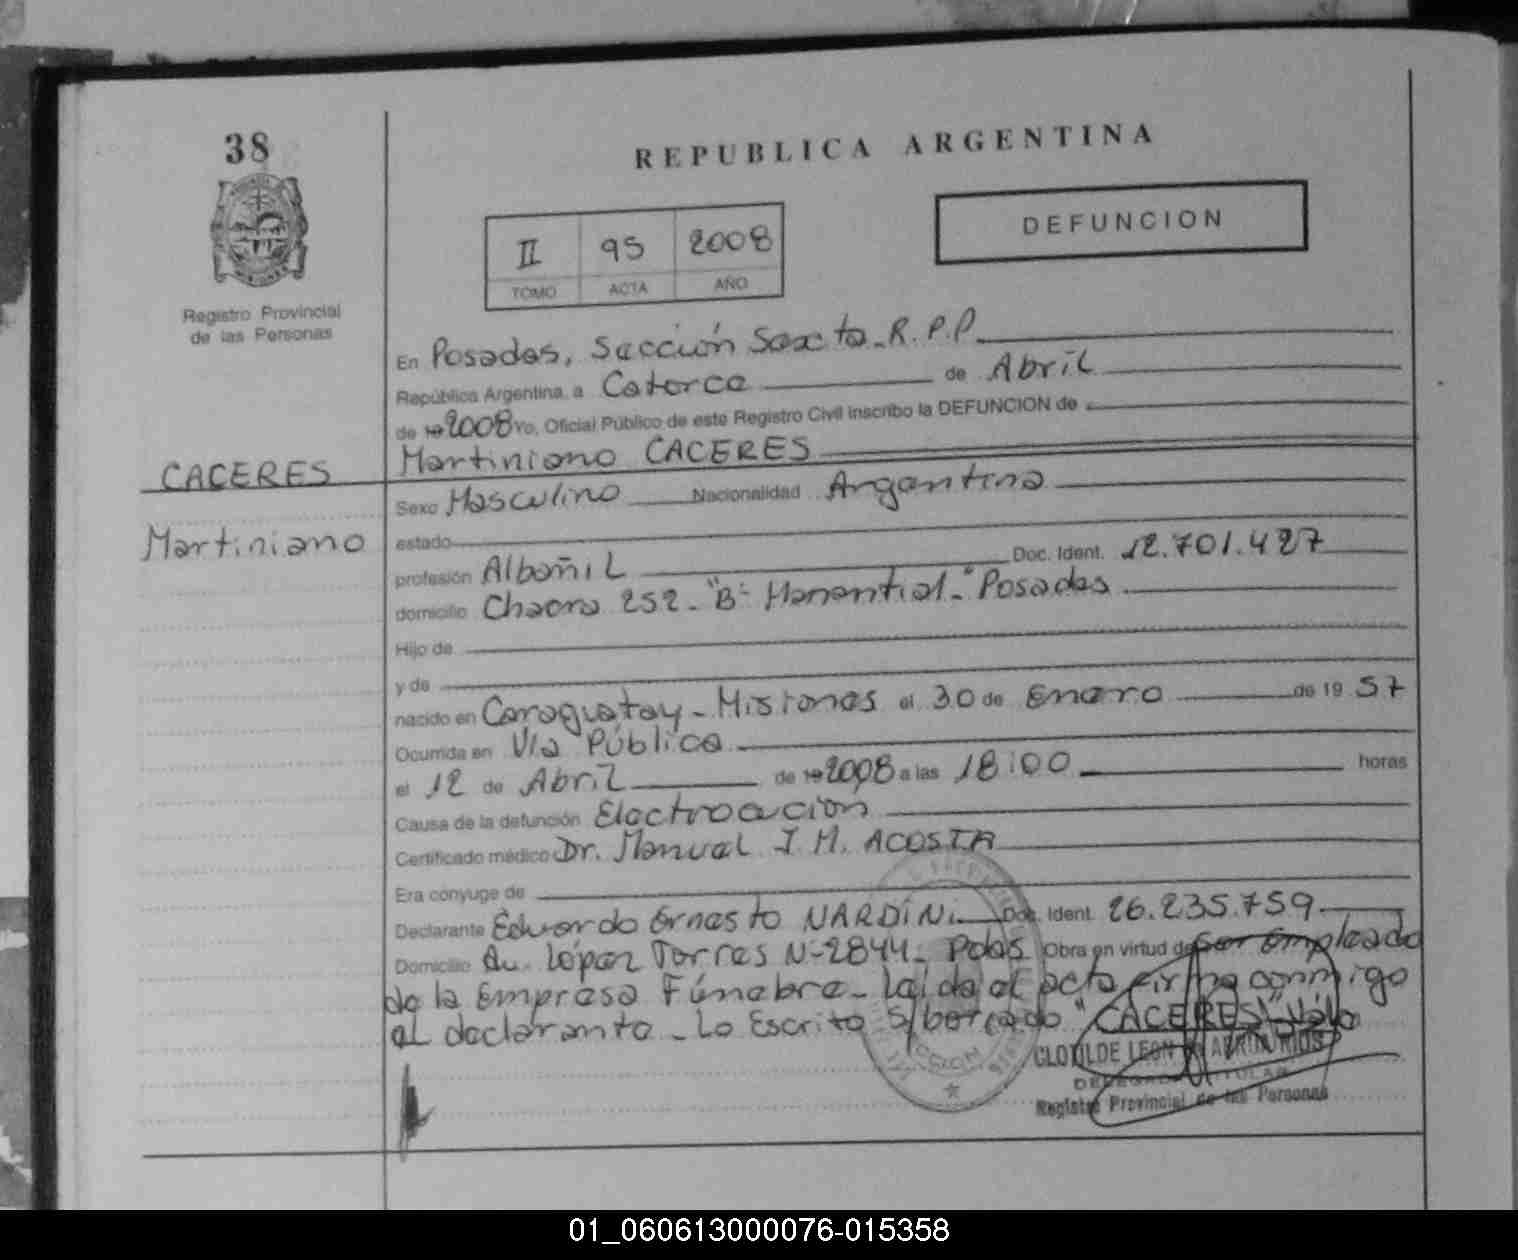 38
REPUBLICA ARGENTINA
DEFUNCION
II 95 2008
TOMO ACTA AÑO
Registro Provincial
de las Personas
En Posadas, Sección Sexta-R.P.P.
República Argentina, a Catorce de Abril
de 19 2008 Yo, Oficial Público de este Registro Civil inscribo la DEFUNCION de
CACERES
Martiniano CACERES
Sexo Masculino Nacionalidad Argentina
Martiniano
estado
profesión Albañil Doc. Ident. 12.701.427
domicilio Chacra 252-"B- Manantial-" Posadas
Hijo de
y de
nacido en Caraguatay-Misiones el 30 de Enero de 19 57
Ocurrida en Vía Pública
el 12 de Abril de 19 2008 a las 18:00 horas
Causa de la defunción Electrocución
Certificado médico Dr. Manuel J. M. ACOSTA
Era cónyuge de
Declarante Eduardo Ernesto NARDINI Doc. Ident. 26.235.759
Domicilio Av. López Torres N-2844- Pdas Obra en virtud de Ser Empleado
de la Empresa Fúnebre- Leída el acta firma conmigo
el declarante-Lo Escrito S/borrado "CACERES" Vale
CLOTILDE LEON
DELEGADA TITULAR
Registro Provincial de las Personas
01_060613000076-015358